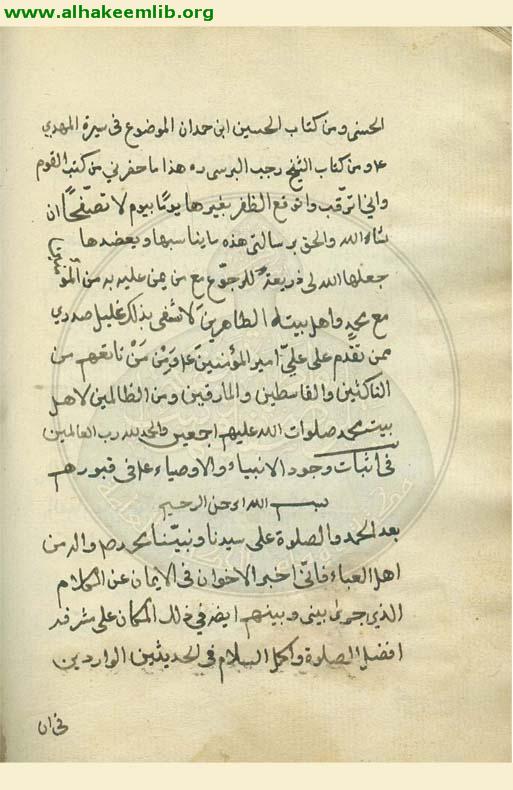 www.alhakeemlib.org
الحسنى ومن كتاب الحسين ابن حمدان الموضوع فى سيرة المهدي
ع ومن كتاب الشيخ رجب البرسى ره هذا ما حضرني من كتب القوم
واني اترقب واتوقع الظفر بغيرها يومًا بيوم لا تصفّحها ان
شاء الله والحق برسالتي هذه ما يناسبها ويعضدها
جعلها الله لى ذريعة للرجوع مع من يمن عليه به من المؤمنين
مع محمد واهل بيته الطاهرين لاشفى بذلك غليل صدري
ممن تقدّم على عليّ امير المؤمنين ع ومن من تابعهم من
الناكثين والقاسطين والمارقين ومن الظالمين لاهل
بيت محمد صلوات الله عليهم اجمعين والحمد لله رب العالمين
فى اثبات وجود الانبياء والاوصياء ع فى قبورهم
بسم الله الرحمن الرحيم
بعد الحمد والصلوة على سيدنا ونبيّنا محمد ص واله من
اهل العباء فانّى اخبر الاخوان فى الايمان عن الكلام
الذي جرى بينى وبينهم ايضا في ذلك المكان على مشرفه
افضل الصلوة واكمل السلام فى الحديثين الواردين
فى ان